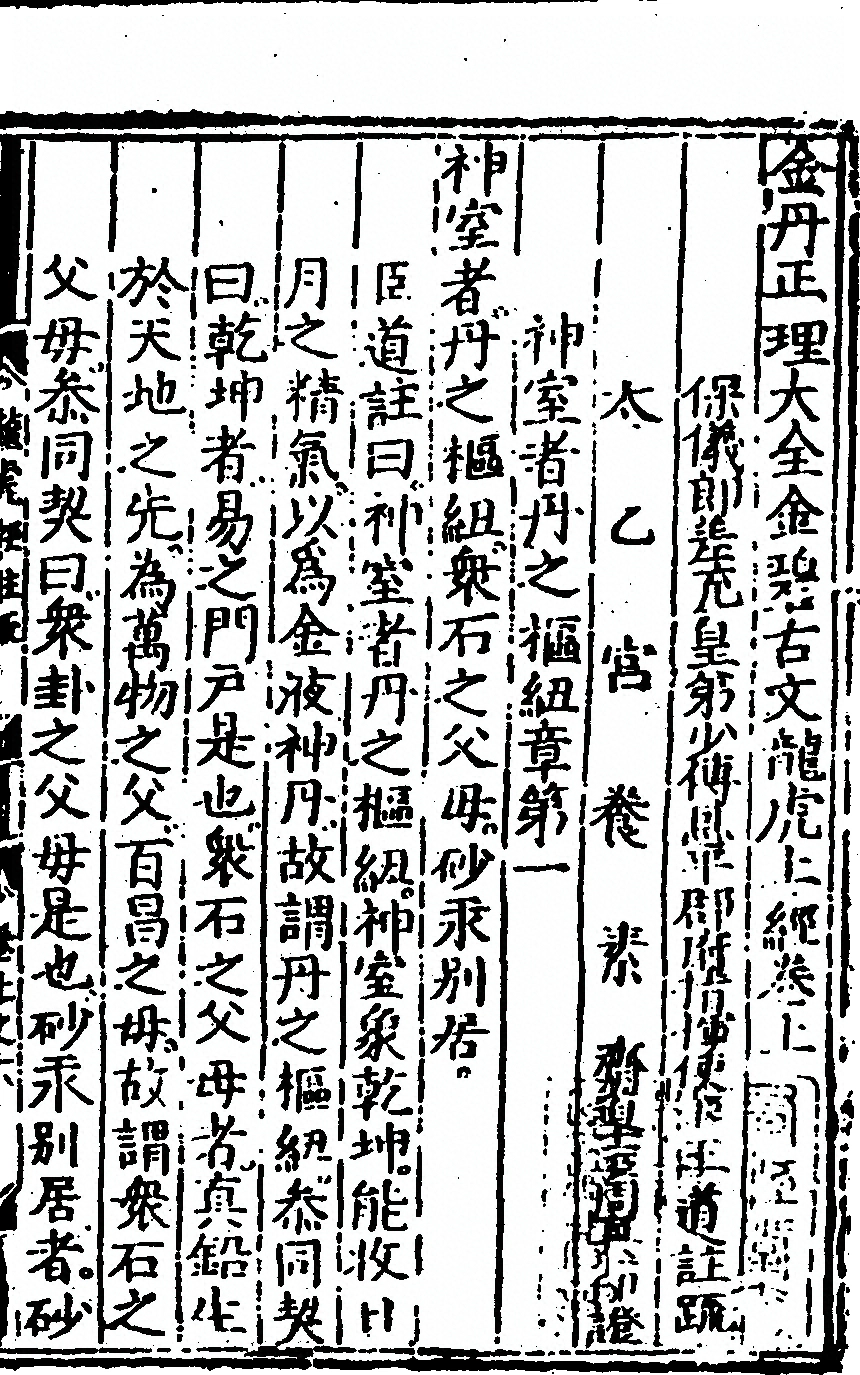 金丹正理大全金碧古文龍虎上經卷上
保儀郎差充皇弟少傅恩平郡府指揮使臣王道註疏
太乙宮養素齋
神室者丹之樞紐章第一
神室者丹之樞紐衆石之父母砂汞別居
臣道註曰神室者丹之樞紐神室象乾坤能收日
月之精氣以爲金液神丹故謂丹之樞紐叅同契
曰乾坤者易之門戶是也衆石之父母者真鉛生
於天地之先為萬物之父百昌之母故謂衆石之
父母叅同契曰衆卦之父母是也砂汞別居者砂